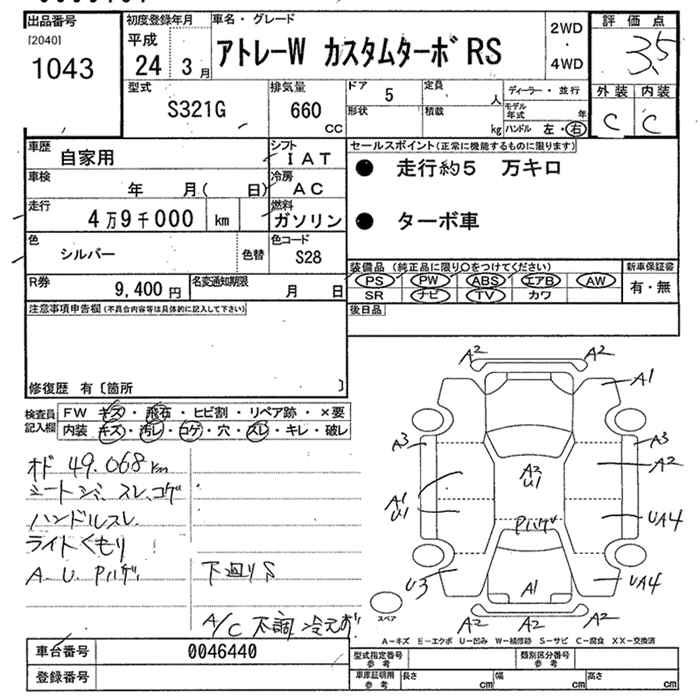 出品番号
[2040]
1043
初度登録年月
平成
24 3月
車名・グレード
アトレーW カスタムターボRS
2WD
・
4WD
評価点
3.5
外装 内装
C C
型式
S321G
排気量
660 CC
ドア 5
形状
定員 人
積載 kg
ディーラー・並行
モデル年式 年
ハンドル 左・右
車歴 自家用
シフト IAT
車検 年 月( 日)
冷房 AC
走行 4万9千000 km
燃料 ガソリン
色 シルバー 色替
色コード S28
R券 9,400 円
名変通知期限 月 日
セールスポイント(正常に機能するものに限ります)
● 走行約5 万キロ
● ターボ車
装備品 (純正品に限り○をつけてください)
PS PW ABS エアB AW
SR ナビ TV カワ
新車保証書
有・無
後日品
注意事項申告欄(不具合内容等は具体的に記入して下さい)
修復歴 有〔箇所 〕
検査員記入欄
FW キズ・飛石・ヒビ割・リペア跡・×要
内装 キズ・汚レ・コゲ・穴・スレ・キレ・破レ
オド 49.068km
シートシミ、スレ、コゲ
ハンドルスレ
ライトくもり
A.U.Pハゲ 下廻りS
A/C 不調 冷えず
A2 A2
A1
A3 A3
A2
A2
U1
A1
U1
Pハゲ
UA4
U3 A1 UA4
A2 A2
スペア
A-キズ E-エクボ U-凹み W-補修跡 S-サビ C-腐食 XX-交換済
車台番号 0046440
登録番号
型式指定番号 参考
類別区分番号 参考
車庫証明用 参考
長さ cm 幅 cm 高さ cm